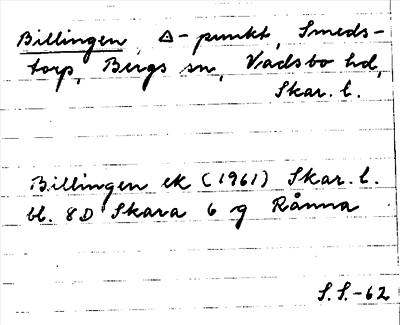 Billingen, Δ-punkt, Smeds-
torp, Bergs sn, Vadsbo hd,
Skar. l.
Billingen ek (1961) Skar. l.
bl. 8D Skara 6 g Rånna
S.S.-62